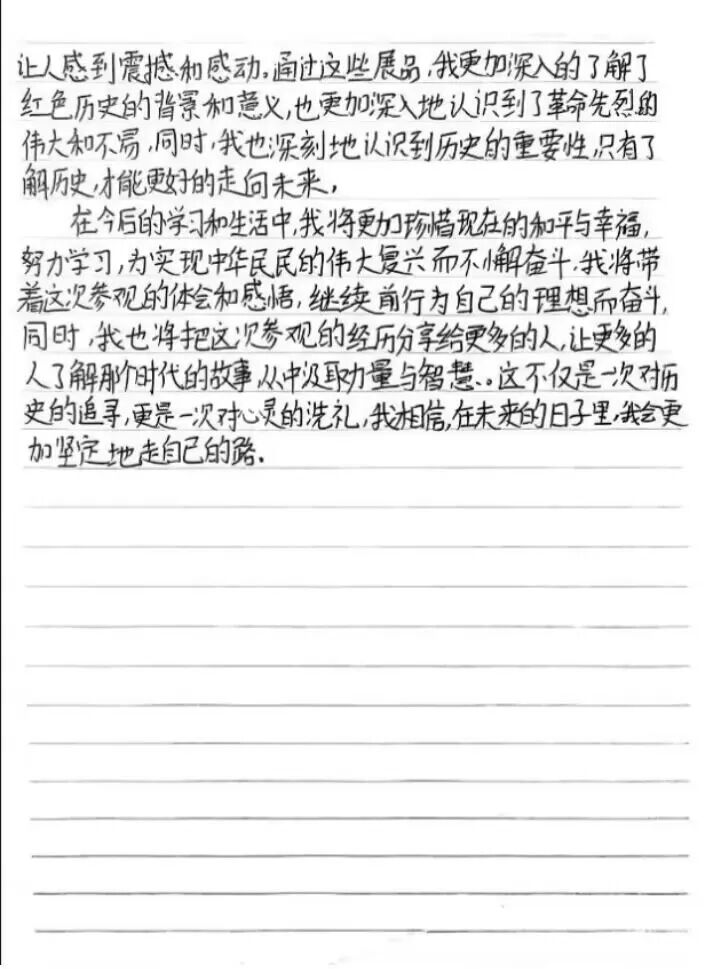 让人感到震撼和感动。通过这些展品,我更加深入的了解了
红色历史的背景和意义,也更加深入地认识到了革命先烈的
伟大和不易,同时,我也深刻地认识到历史的重要性,只有了
解历史,才能更好的走向未来,
在今后的学习和生活中,我将更加珍惜现在的和平与幸福,
努力学习,为实现中华民民的伟大复兴而不懈奋斗.我将带
着这次参观的体会和感悟,继续前行为自己的理想而奋斗,
同时,我也将把这次参观的经历分享给更多的人,让更多的
人了解那个时代的故事,从中汲取力量与智慧、。这不仅是一次对历
史的追寻,更是一次对心灵的洗礼,我相信,在未来的日子里,我会更
加坚定地走自己的路.